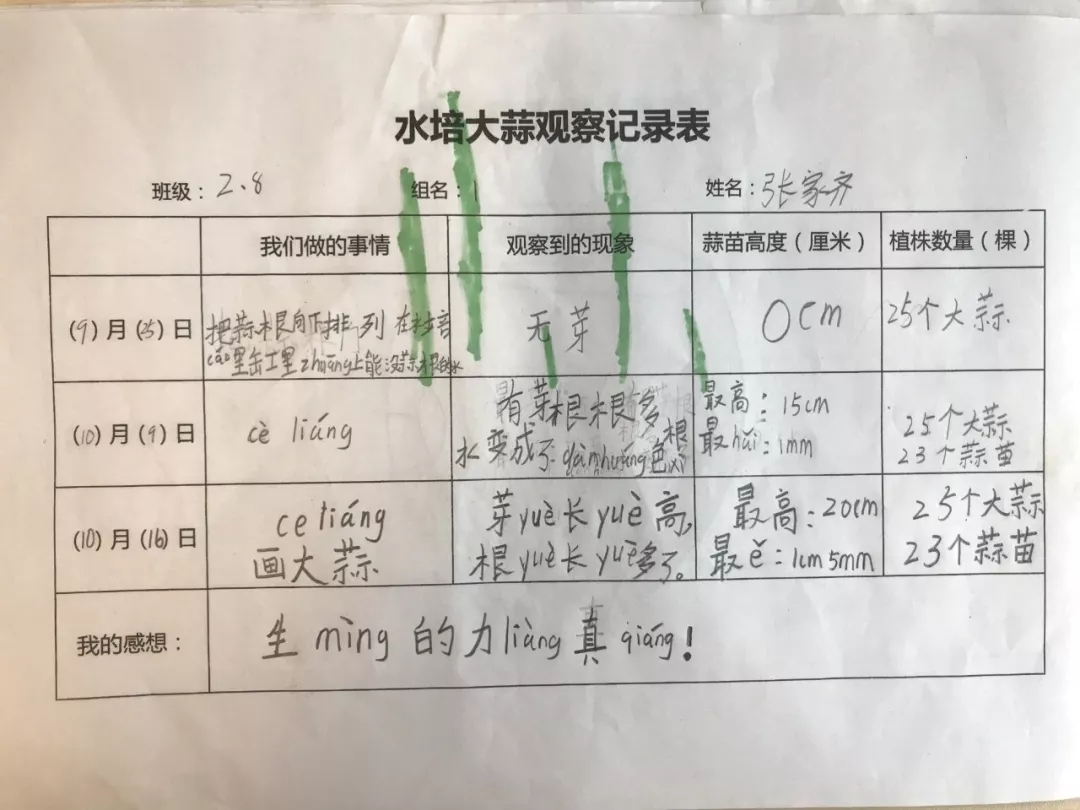 水培大蒜观察记录表
班级：2.8 组名：1 姓名：张家齐
我们做的事情 观察到的现象 蒜苗高度（厘米） 植株数量（棵）
(9)月(25)日 把蒜根向下排列在培 无芽 0cm 25个大蒜
cáo里 zhuāng上能没蒜根的水
(10)月(9)日 cè liáng 有芽根根多 最高：15cm 25个大蒜
水变成了 huáng色 根 最hǎi：1mm 23个蒜苗
(10)月(16)日 ce liáng 芽yuè长yuè高， 最高：20cm 25个大蒜
画大蒜 根yuè长yuè多了。 最ě：1cm 5mm 23个蒜苗
我的感想： 生mìng的力liàng真qiáng！